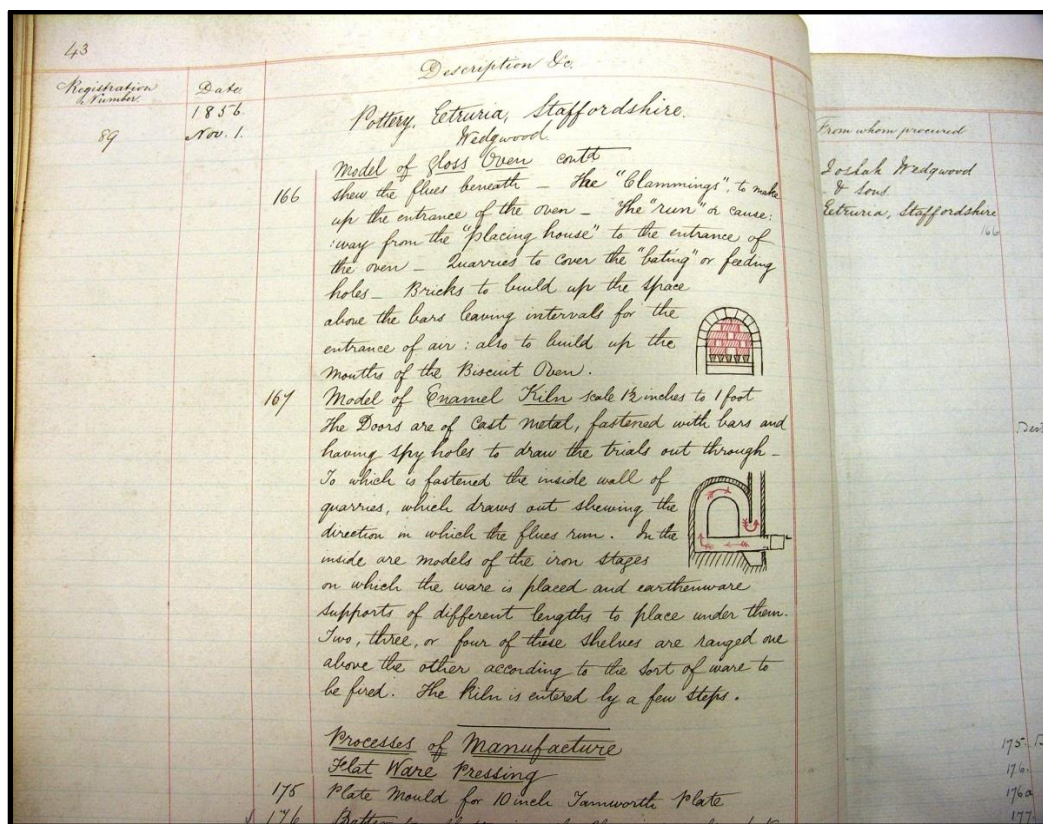 43
Registration Number.
Date.
Description &c.
1856.
89
Nov. 1.
Pottery, Etruria, Staffordshire.
Wedgwood.
Model of Gloss Oven contd
166
shew the flues beneath — The "Clammings", to make
up the entrance of the oven — The "run" or cause:
:way from the "placing house" to the entrance of
the oven — Quarries to cover the "bating" or feeding
holes — Bricks to build up the space
above the bars leaving intervals for the
entrance of air : also to build up the
mouths of the Biscuit Oven.
167
Model of Enamel Kiln scale 1½ inches to 1 foot
The Doors are of Cast Metal, fastened with bars and
having spy holes to draw the trials out through —
To which is fastened the inside wall of
quarries, which draws out shewing the
direction in which the flues run. In the
inside are models of the iron stages
on which the ware is placed and earthenware
supports of different lengths to place under them.
Two, three, or four of these shelves are ranged one
above the other according to the sort of ware to
be fired. The Kiln is entered by a few steps.
Processes of Manufacture
Flat Ware Pressing
175
Plate Mould for 10 inch Tamworth Plate
176
From whom procured
Josiah Wedgwood
& Sons
Etruria, Staffordshire
166
175.
176.
176a
177